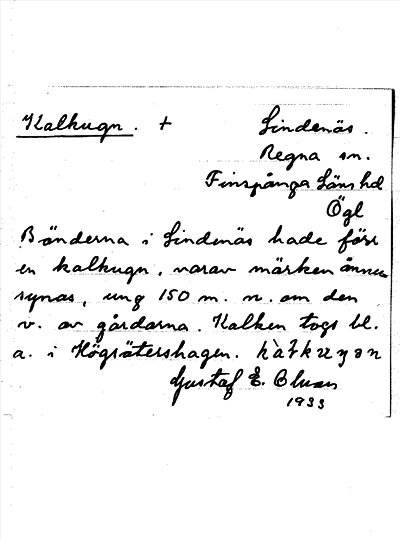 Kalkugn. + Lindenäs.
Regna sn.
Finspånga Läns hd
Ögl
Bönderna i Lindenäs hade förr
en kalkugn, varav märken ännu
synas, ung 150 m. n. om den
v. av gårdarna. Kalken togs bl.
a. i Högsätershagen.
Gustaf E.
1933